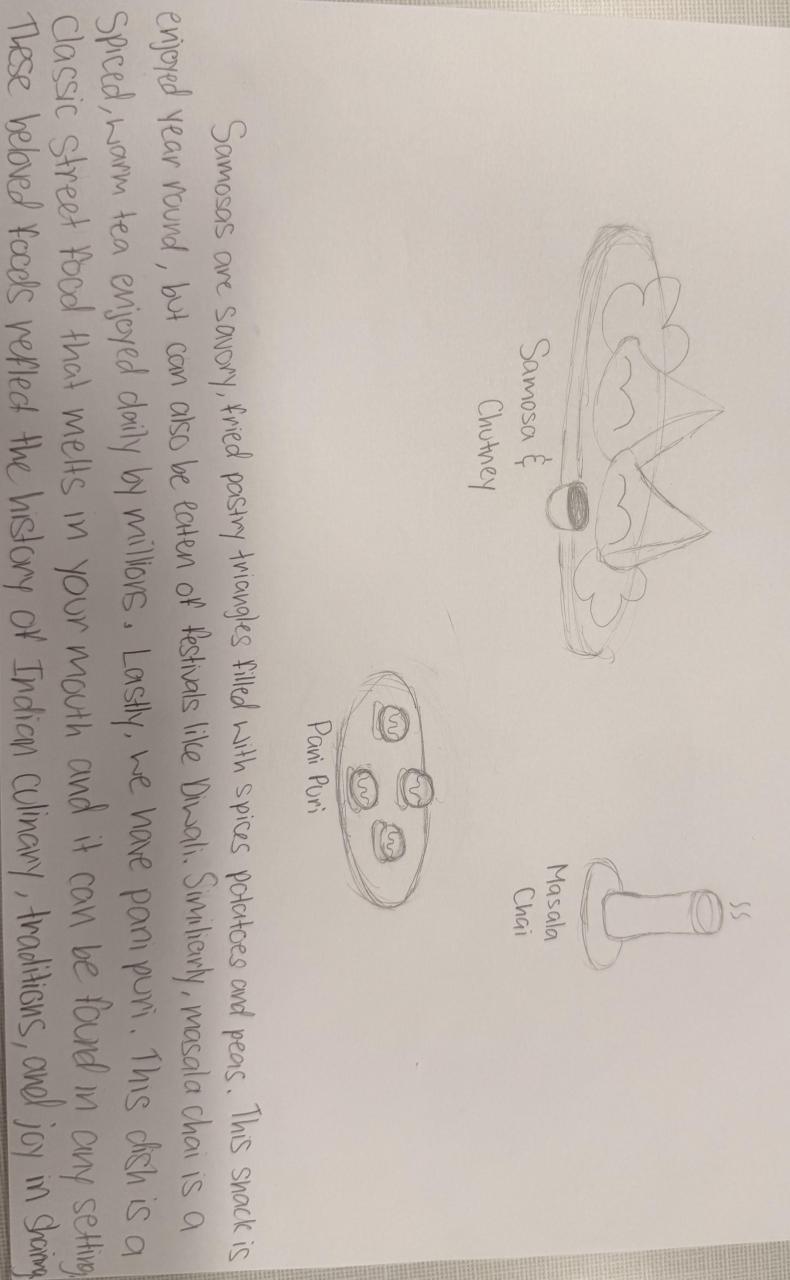 Samosa &
Chutney
Masala
Chai
Pani Puri
Samosas are savory, fried pastry triangles filled with spices potatoes and peas. This snack is
enjoyed year round, but can also be eaten of festivals like Diwali. Similiarly, masala chai is a
spiced, warm tea enjoyed daily by millions. Lastly, we have pani puri. This dish is a
classic street food that melts in your mouth and it can be found in any setting
These beloved foods reflect the history of Indian culinary, traditions, and joy in sharing